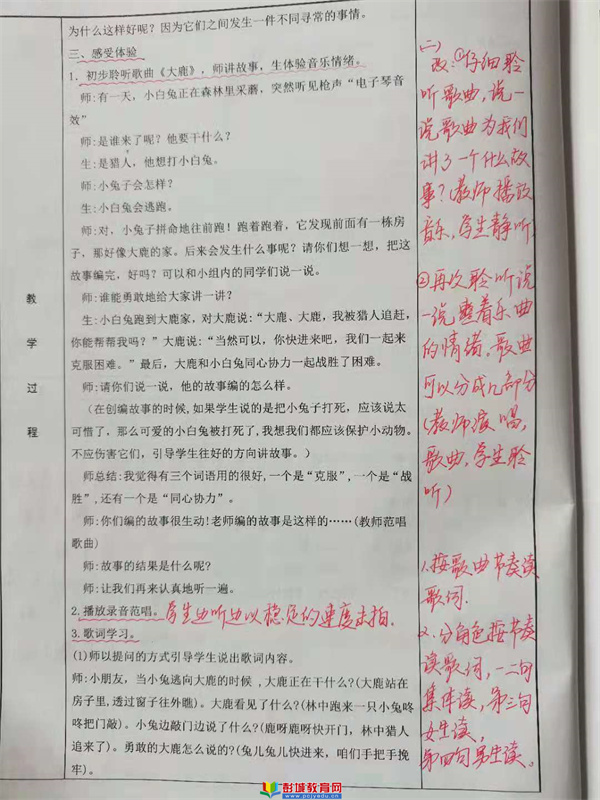 为什么这样好呢？因为它们之间发生一件不同寻常的事情。
三、感受体验
1．初步聆听歌曲《大鹿》，师讲故事，生体验音乐情绪。
师：有一天，小白兔正在森林里采蘑，突然听见枪声“电子琴音
效”
师：是谁来了呢？他要干什么？
生：是猎人，他想打小白兔。
师：小兔子会怎样？
生：小白兔会逃跑。
师：对，小兔子拼命地往前跑！跑着跑着，它发现前面有一栋房
子，那好像大鹿的家。后来会发生什么事呢？请你们想一想，把这
故事编完，好吗？可以和小组内的同学们说一说。
师：谁能勇敢地给大家讲一讲？
生：小白兔跑到大鹿家，对大鹿说：“大鹿、大鹿，我被猎人追赶，
你能帮帮我吗？”大鹿说：“当然可以，你快进来吧，我们一起来
克服困难。”最后，大鹿和小白兔同心协力一起战胜了困难。
师：请你们说一说，他的故事编的怎么样。
（在创编故事的时候，如果学生说的是把小兔子打死，应该说太
可惜了，那么可爱的小白兔被打死了，我想我们都应该保护小动物。
不应伤害它们，引导学生往好的方向讲故事。）
师总结：我觉得有三个词语用的很好，一个是“克服”，一个是“战
胜”，还有一个是“同心协力”。
师：你们编的故事很生动！老师编的故事是这样的……（教师范唱
歌曲）
师：故事的结果是什么呢？
师：让我们再来认真地听一遍。
2．播放录音范唱。学生边听边以稳定的速度击拍．
3．歌词学习。
(1)师以提问的方式引导学生说出歌词内容。
师：小朋友，当小兔逃向大鹿的时候，大鹿正在干什么？(大鹿站在
房子里，透过窗子往外瞧)。大鹿看见了什么？(林中跑来一只小兔咚
咚把门敲)。小兔边敲门边说了什么？(鹿呀鹿呀快开门，林中猎人
追来了)。勇敢的大鹿怎么说的？(兔儿兔儿快进来，咱们手把手挽
牢)。
教
学
过
程
二)
改：①仔细聆
听歌曲，说一
说歌曲为我们
讲了一个什么故
事？(教师播放
音乐，学生静听
②再次聆听说
一说 着乐曲
的情绪，歌曲
可以分成几部分
(教师演唱，
歌曲，学生聆
听）
1.按歌曲节奏读
歌词．
2、分角色按节奏
读歌词，一二句
集体读，第三句
女生读，
第四句男生读。
彭城教育网
www.pcjyedu.cn